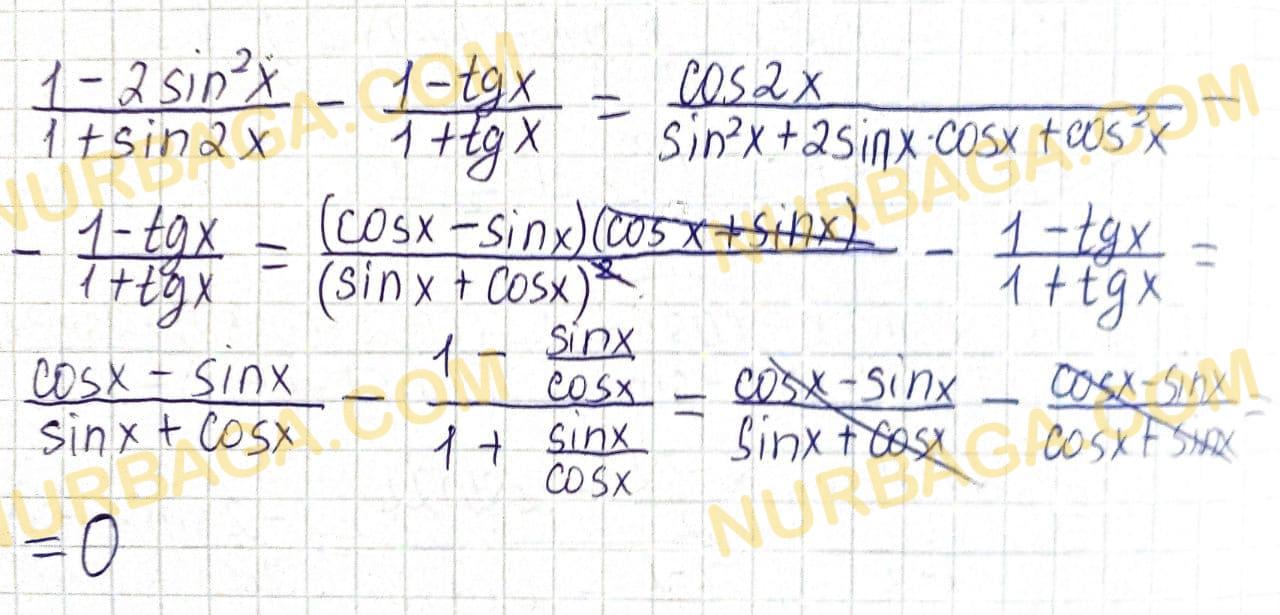 (1 - 2sin²x)/(1 + sin2x) - (1 - tgx)/(1 + tgx) = cos2x/(sin²x + 2sinx·cosx + cos²x) -
- (1 - tgx)/(1 + tgx) = (cosx - sinx)(cosx + sinx)/(sinx + cosx)² - (1 - tgx)/(1 + tgx) =
(cosx - sinx)/(sinx + cosx) - (1 - sinx/cosx)/(1 + sinx/cosx) = (cosx - sinx)/(sinx + cosx) - (cosx - sinx)/(cosx + sinx) =
= 0
NURBAGA.COM
NURBAGA.COM
NURBAGA.COM
NURBAGA.COM